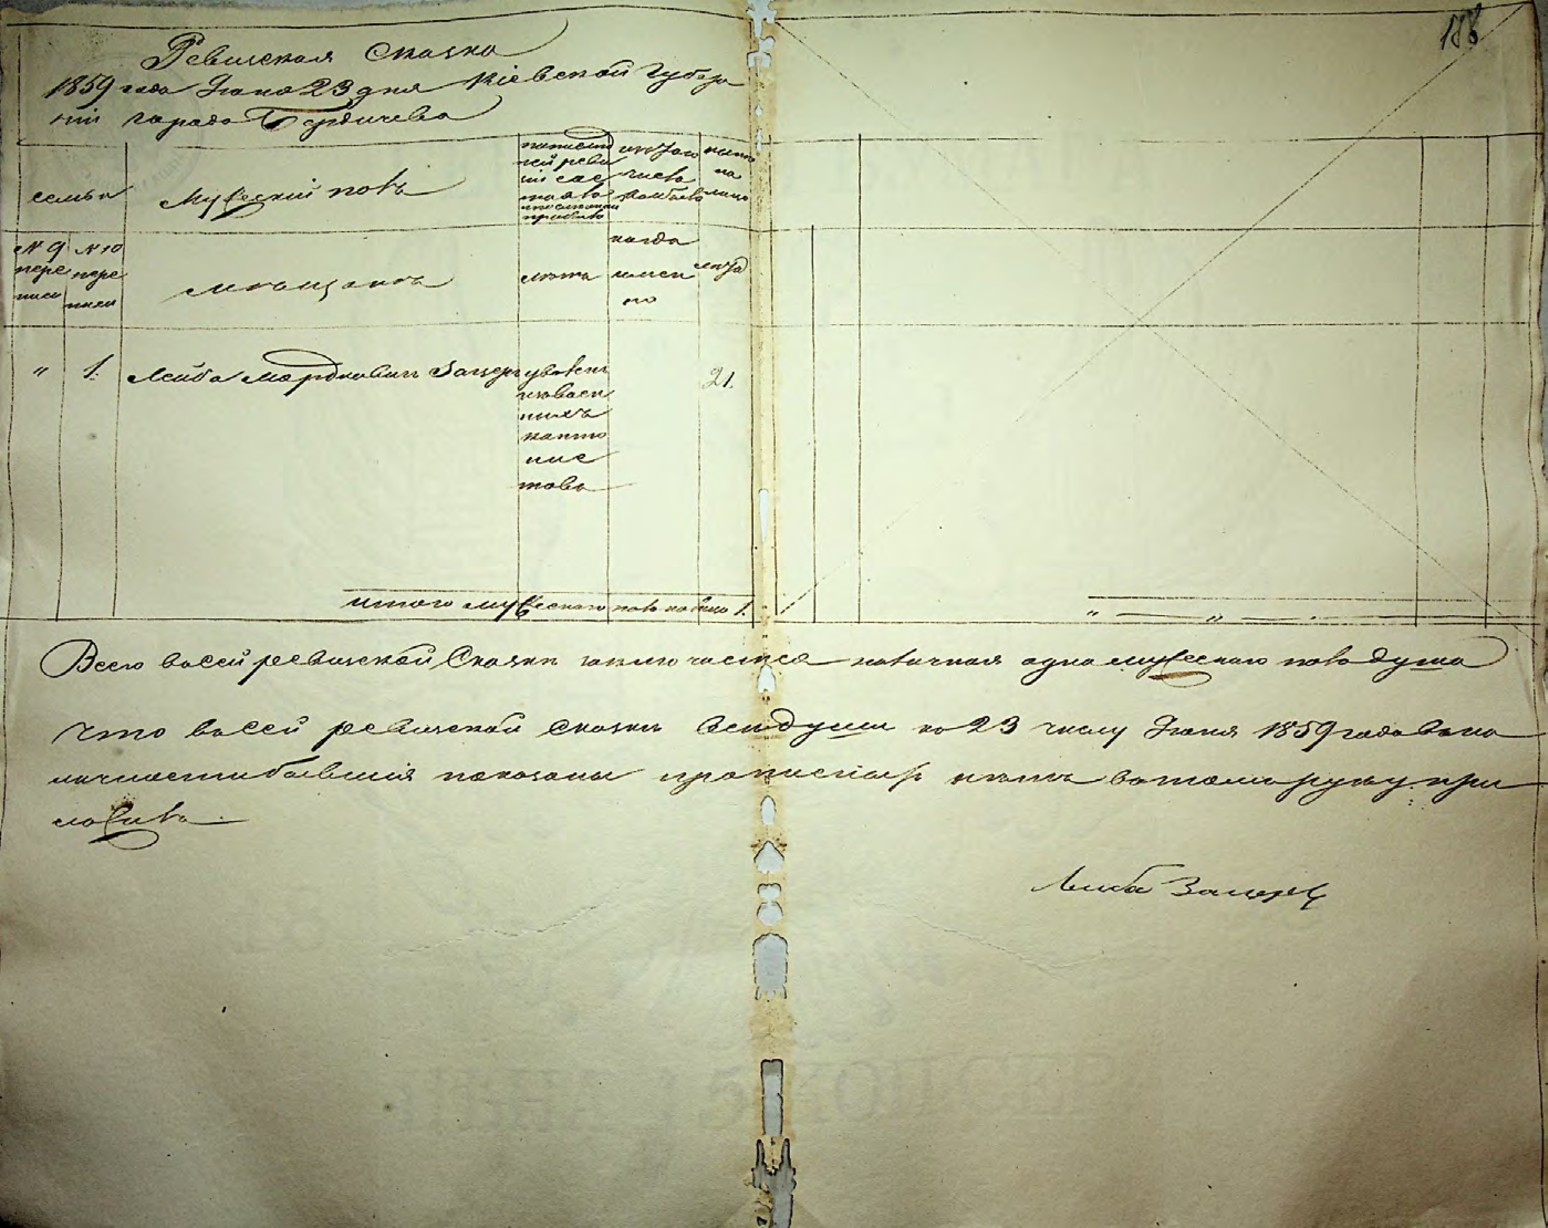 188
Ревизская Сказка
1859 года Іюня 23 дня Кіевской Губер
ніи города Бердичева
семьи
Мужескій полъ
по последн
ней реви
зіи сос
тояло
прибыло
изъ того
числа
выбыло
ныне
на
лицо
№ 9
пере
писи
№ 10
пере
писи
мещанинъ
лета
когда
имен
но
лета
" 1. Лейба Мордковичъ Зацеръ
уволен
изъ воен
ныхъ
канто
нис
товъ
21.
итого мужескаго пола на лицо 1.
" "
Всего в сей ревизской Сказки заключается наличная одна мужескаго пола душа
Что в сей ревизской сказки все души по 23 числу Іюня 1859 года в на
личности бывшія показаны прописных нетъ в томъ руку при
ложилъ
Лейба Зацеръ